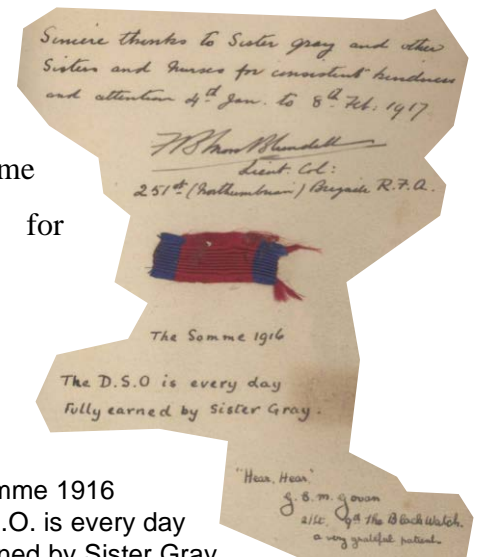 Sincere thanks to Sister Gray and other
Sisters and Nurses for consistent kindness
and attention 4th Jan. to 8th Feb: 1917
Lieut. Col:
251st (Northumbrian) Brigade R.F.A.
me
for
The Somme 1916
The D.S.O is every day
Fully earned by Sister Gray.
"Hear, Hear."
G.S.M. Govan
2/Lt. 9th The Black Watch.
a very grateful patient
mme 1916
.O. is every day
ned by Sister Gray